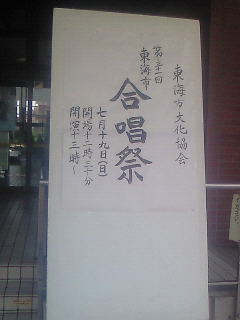 東海市文化協会
東海市
合唱祭
七月十九日(日)
開場十二時三十分
開演十三時～